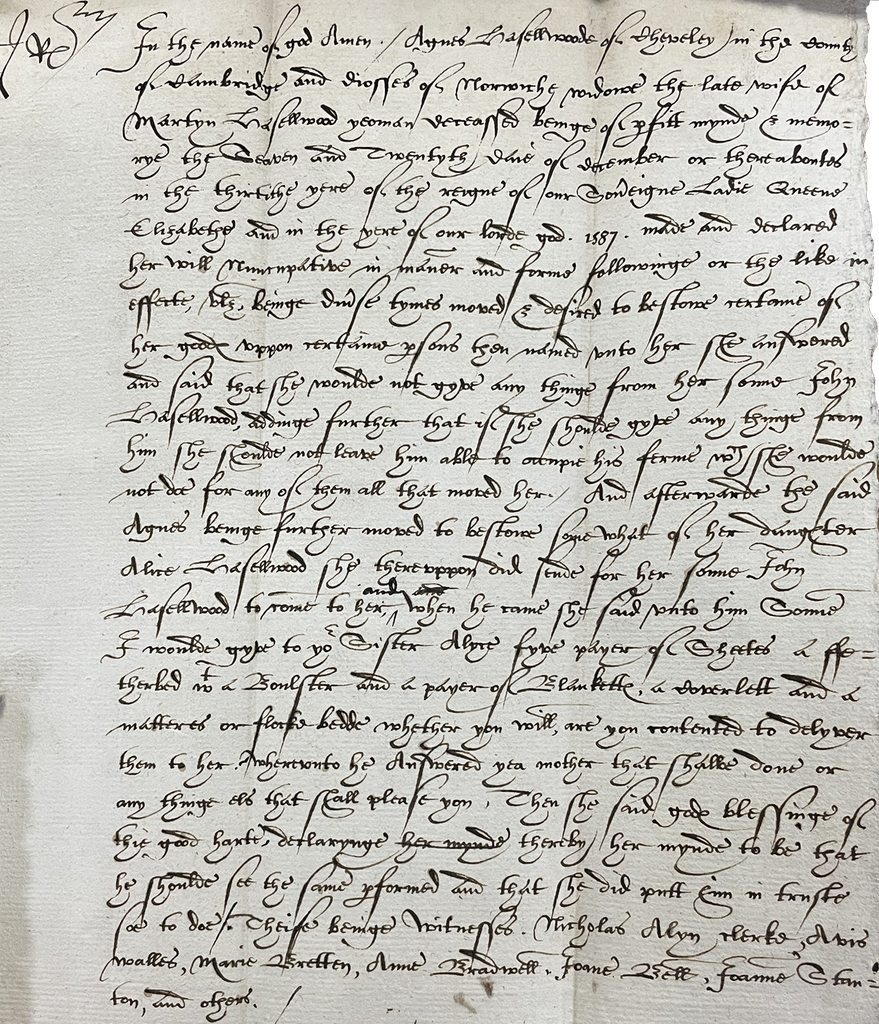 In the name of god Amen. / Agnes Hasellwoode of Cheveley in the County
of Cambridge and diosses of Norwiche widowe the late wife of
Martyn Hasellwood yeoman deceassed beinge of pfitt mynde & memo=
rye the Seaven and Twentyth daie of december or thereaboutes
in the thirtithe yere of the reigne of our Sov'eigne Ladie Queene
Elizabethe and in the yere of our lorde god. 1587. made and declared
her will Nuncupative in man̄er and forme followinge or the like in
effecte, vizt, beinge div'se tymes moved & desired to bestowe certaine of
her goodes uppon certaine psons then named unto her she answered
and said that she woulde not gyve any thinge from her sonne John
Hasellwood, addinge further that if she shoulde gyve any thinge from
him she shoulde not leave him able to occupie his ferme wch she woulde
not doe for any of them all that moved her. / And afterwarde the said
Agnes beinge further moved to bestowe somewhat of her daughter
Alice Hasellwood she thereuppon did sende for her sonne John
Hasellwood to come to her, and when he came she said unto him Sonne
I woulde gyve to yor Sister Alyce fyve payer of Sheetes a ffe=
therbed wt a Boulster and a payer of Blanketts, a coverlett and a
matteres or flocke bedde whether you will, are you contented to delyver
them to her. Whereunto he Answered yea mother that shalbe done or
any thinge els that shall please you, Then she said godes blessinge of
thie good harte, declarynge her mynde thereby her mynde to be that
he shoulde see the same pformed and that she did putt him in truste
soe to doe /. Theise beinge witnesses. Nicholas Alyn clerke, Avis
Walles, Marie Bretten, Anne Bradwell, Joane Bell, Joanne Stan=
ton, and others. /